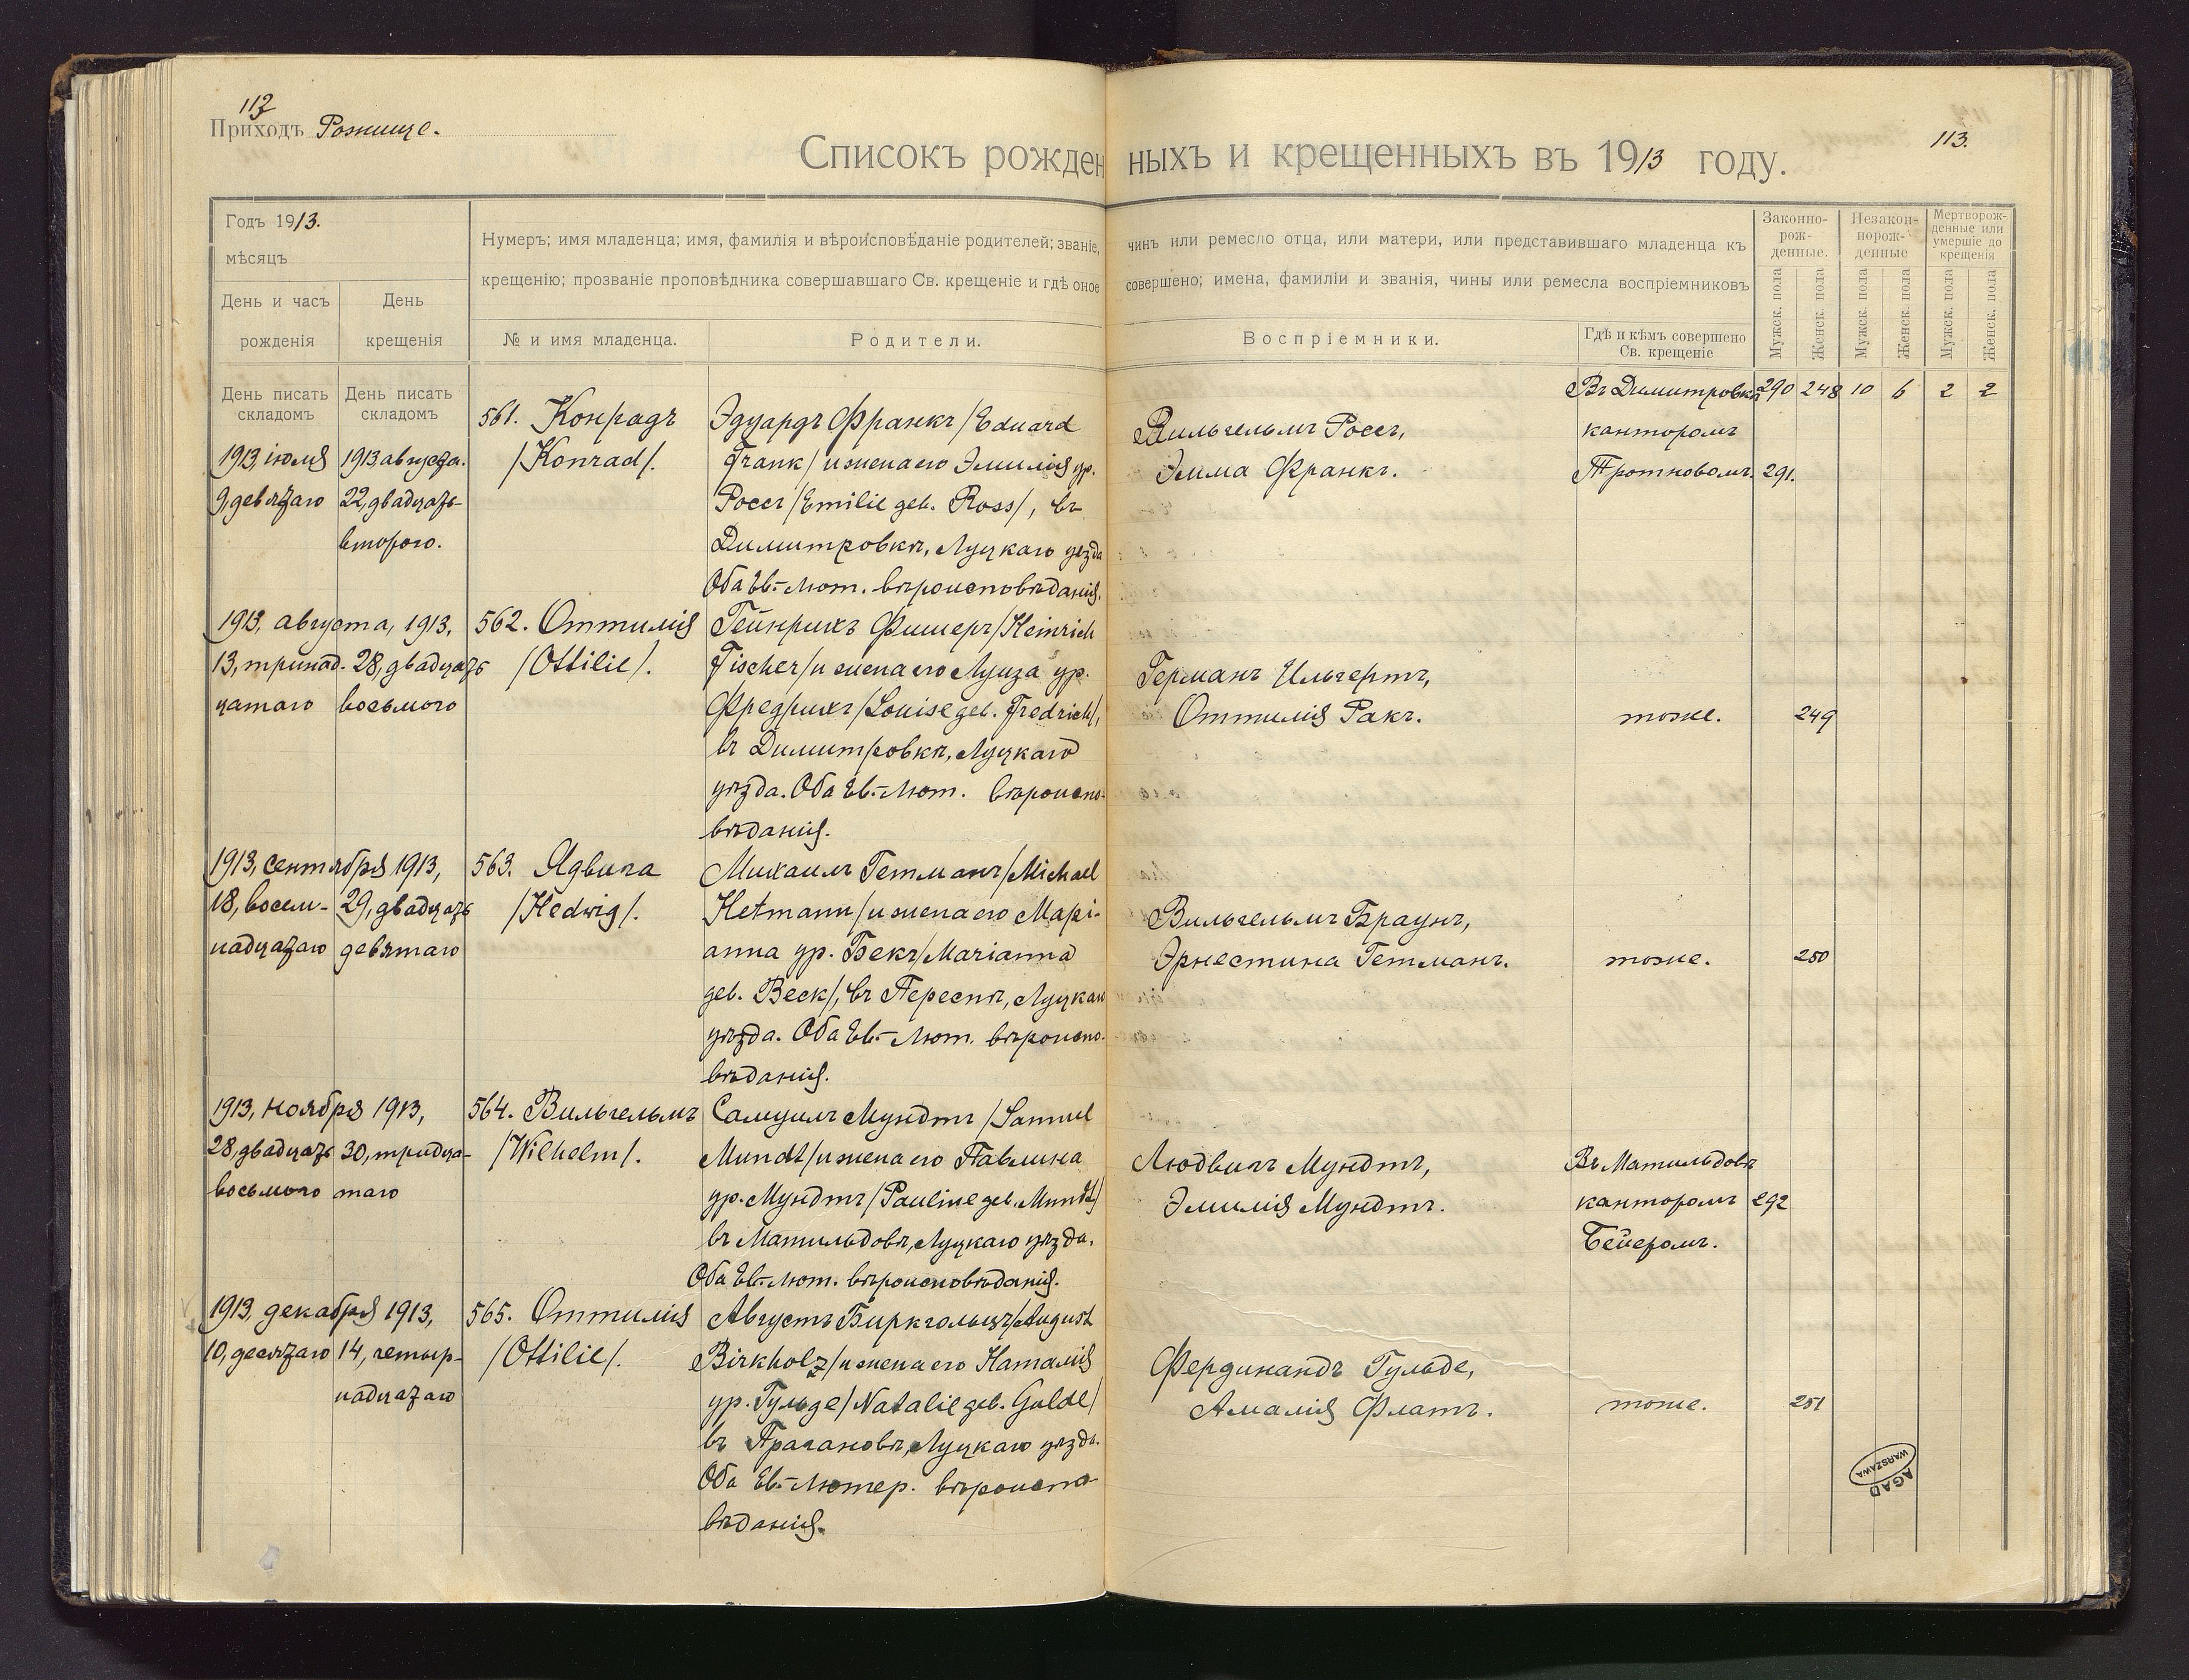 113
Приходъ Рожище.
113.
Списокъ рожденныхъ и крещенныхъ въ 1913 году.
Годъ 1913.
мѣсяцъ
День и часъ
рожденія
День
крещенія
Нумеръ; имя младенца; имя, фамилія и вѣроисповѣданіе родителей; званіе, чинъ или ремесло отца, или матери, или представившаго младенца къ
крещенію; прозваніе проповѣдника совершавшаго Св. крещеніе и гдѣ оное совершено; имена, фамиліи и званія, чины или ремесла воспріемниковъ
№ и имя младенца.
Родители.
Воспріемники.
Гдѣ и кѣмъ совершено
Св. крещеніе
Законно-
рож-
денные.
Незакон-
норож-
денные
Мертворож-
денные или
умершіе до
крещенія
Мужск. пола
Женск. пола
Мужск. пола
Женск. пола
Мужск. пола
Женск. пола
День писать
складомъ
День писать
складомъ
290 248 10 6 2 2
1913, іюля
9, девятаго
1913, августа.
22, двадцать-
второго.
561. Конрадъ
/Konrad/.
Эдуардъ Франкъ /Eduard
Frank/ и жена его Эмилія ур.
Россъ /Emilie geb. Ross/, въ
Димитровкѣ, Луцкаго уѣзда
Оба Ев.-Лют. вѣроисповѣданія.
Вильгельмъ Россъ,
Эмма Франкъ.
Въ Димитровкѣ
канторомъ
Тротновомъ.
291.
1913, августа, 1913,
13, тринад- 28, двадцать
цатаго восьмого
562. Оттилія
/Ottilie/.
Гейнрихъ Фишеръ /Heinrich
Fischer/ и жена его Луиза ур.
Фредрихъ /Louise geb. Fredrich/,
въ Димитровкѣ, Луцкаго
уѣзда. Оба Ев.-Лют. вѣроиспо-
вѣданія.
Германъ Ильгертъ,
Оттилія Ракъ.
тоже.
249
1913, сентября 1913,
18, восем- 29, двадцать
надцатаго девятаго
563. Ядвига
/Hedwig/.
Михаилъ Гетманъ /Michael
Hetmann/ и жена его Марі-
анна ур. Бекъ /Marianna
geb. Beck/, въ Переспѣ, Луцкаго
уѣзда. Оба Ев.-Лют. вѣроиспо-
вѣданія.
Вильгельмъ Браунъ,
Эрнестина Гетманъ.
тоже.
250
1913, ноября 1913,
28, двадцать 30, тридца-
восьмого таго
564. Вильгельмъ
/Wilhelm/.
Самуилъ Мундтъ /Samuel
Mundt/ и жена его Павлина
ур. Мундтъ /Pauline geb. Mundt/
въ Матильдовѣ, Луцкаго уѣзда.
Оба Ев.-Лют. вѣроисповѣданія.
Людвигъ Мундтъ,
Эмилія Мундтъ.
Въ Матильдовѣ
канторомъ
Бейеромъ.
292
1913, декабря 1913,
10, десятаго 14, четыр-
надцатаго
565. Оттилія
/Ottilie/.
Августъ Биркгольцъ /August
Birkholz/ и жена его Наталія
ур. Гульде /Natalie geb. Gulde/
въ Прагановѣ, Луцкаго уѣзда.
Оба Ев.-Лютер. вѣроиспо
вѣданія.
Фердинандъ Гульде,
Амалія Флатъ.
тоже.
251
AGAD
WARSZAWA